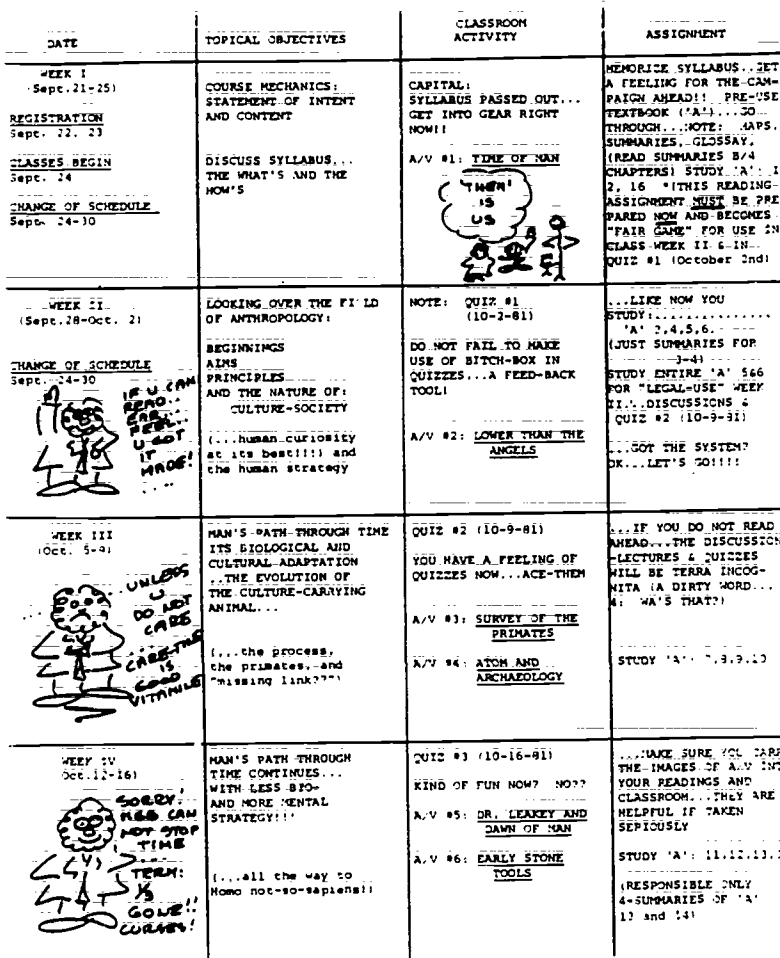 DATE
TOPICAL OBJECTIVES
CLASSROOM
ACTIVITY
ASSIGNMENT
WEEK I
(Sept.21-25)
REGISTRATION
Sept. 22, 23
CLASSES BEGIN
Sept. 24
CHANGE OF SCHEDULE
Sept. 24-30
COURSE MECHANICS:
STATEMENT OF INTENT
AND CONTENT
DISCUSS SYLLABUS...
THE WHAT'S AND THE
HOW'S
CAPITAL:
SYLLABUS PASSED OUT...
GET INTO GEAR RIGHT
NOW!!
A/V #1: TIME OF MAN
'THEM'
IS
US
MEMORIZE SYLLABUS..GET
A FEELING FOR THE CAM-
PAIGN AHEAD!! PRE-USE
TEXTBOOK ('A')...GO
THROUGH...NOTE: MAPS,
SUMMARIES, GLOSSAY,
(READ SUMMARIES B/4
CHAPTERS) STUDY 'A':
2, 16 *(THIS READING-
ASSIGNMENT MUST BE PRE
PARED NOW AND BECOMES
"FAIR GAME" FOR USE IN
CLASS WEEK II & IN
QUIZ #1 (October 2nd)
WEEK II
(Sept.28-Oct. 2)
CHANGE OF SCHEDULE
Sept. 24-30
IF U CAN
READ..
EAR..
FEEL..
U GOT
IT
MADE!
....
LOOKING OVER THE FIELD
OF ANTHROPOLOGY:
BEGINNINGS
AIMS
PRINCIPLES
AND THE NATURE OF:
CULTURE-SOCIETY
(...human curiosity
at its best!!!) and
the human strategy
NOTE: QUIZ #1
(10-2-81)
DO NOT FAIL TO MAKE
USE OF BITCH-BOX IN
QUIZZES...A FEED-BACK
TOOL!
A/V #2: LOWER THAN THE
ANGELS
...LIKE NOW YOU
STUDY:..............
'A' 2,4,5,6.
(JUST SUMMARIES FOR
3-4)
STUDY ENTIRE 'A' 5&6
FOR "LEGAL-USE" WEEK
II...DISCUSSIONS &
QUIZ #2 (10-9-81)
...GOT THE SYSTEM?
OK...LET'S GO!!!!
WEEK III
(Oct. 5-9)
...UNLESS
U
DO NOT
CARE
....
CARE-TIME
IS
GOOD
VITAMINE
MAN'S PATH THROUGH TIME
ITS BIOLOGICAL AND
CULTURAL ADAPTATION
..THE EVOLUTION OF
THE CULTURE-CARRYING
ANIMAL...
(...the process,
the primates, and
"missing link???")
QUIZ #2 (10-9-81)
YOU HAVE A FEELING OF
QUIZZES NOW...ACE-THEM
A/V #3: SURVEY OF THE
PRIMATES
A/V #4: ATOM AND
ARCHAEOLOGY
...IF YOU DO NOT READ
AHEAD...THE DISCUSSION
-LECTURES & QUIZZES
WILL BE TERRA INCOG-
NITA (A DIRTY WORD...
4: WA'S THAT?)
STUDY 'A': 7,8,9,10
WEEK IV
Oct.12-16)
SORRY!
CAN
NOT STOP
TIME
....
TERM:
1/3
GONE!!
CURSES!
MAN'S PATH THROUGH
TIME CONTINUES...
WITH LESS BIO-
AND MORE MENTAL
STRATEGY!!!
(...all the way to
Homo not-so-sapiens!)
QUIZ #3 (10-16-81)
KIND OF FUN NOW? NO??
A/V #5: DR. LEAKEY AND
DAWN OF MAN
A/V #6: EARLY STONE
TOOLS
...MAKE SURE YOU CARR
THE IMAGES OF A/V INT
YOUR READINGS AND
CLASSROOM...THEY ARE
HELPFUL IF TAKEN
SERIOUSLY
STUDY 'A': 11,12,13,
(RESPONSIBLE ONLY
4-SUMMARIES OF 'A'
13 and 14)